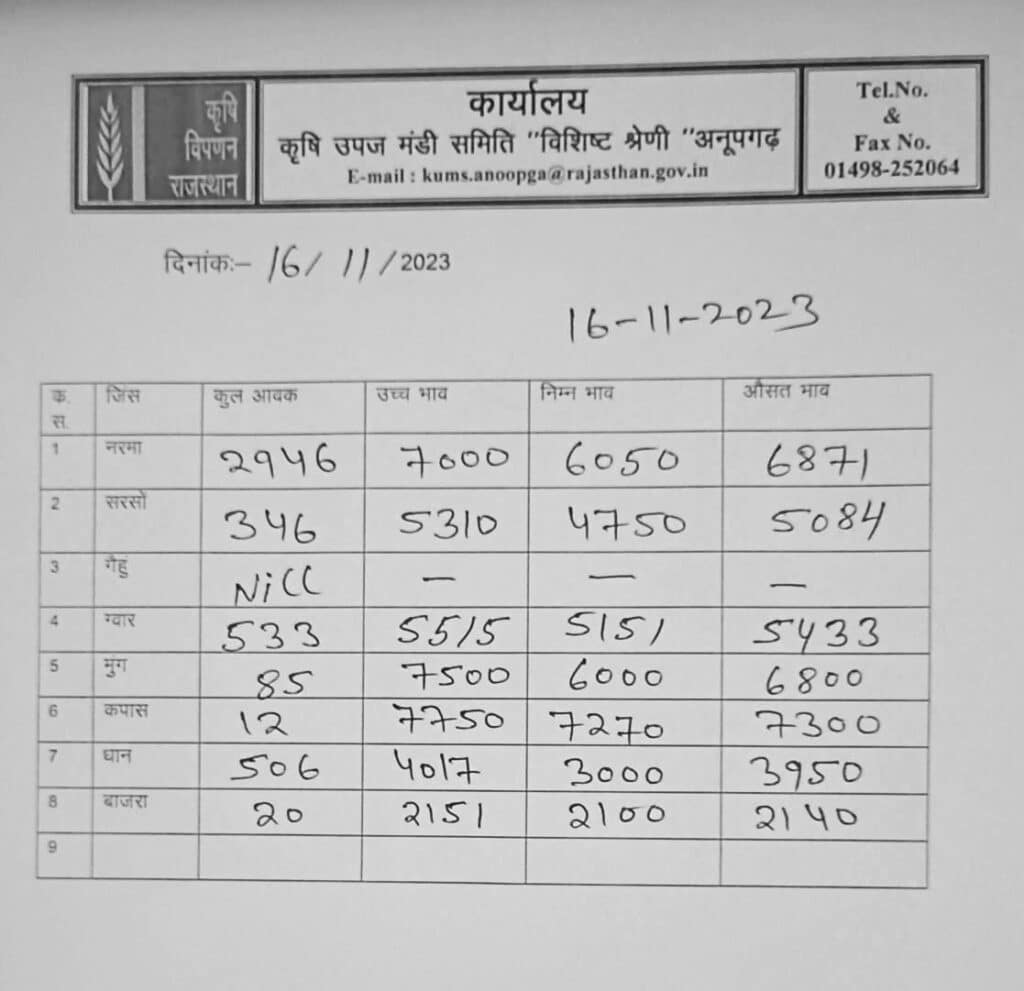 कृषि
विपणन
राजस्थान
कार्यालय
कृषि उपज मंडी समिति "विशिष्ट श्रेणी "अनूपगढ़
E-mail : kums.anoopga@rajasthan.gov.in
Tel.No.
&
Fax No.
01498-252064
दिनांकः– 16/ 11 /2023
16-11-2023
क. स. जिंस कुल आवक उच्च भाव निम्न भाव औसत भाव
1 नरमा 2946 7000 6050 6871
2 सरसों 346 5310 4750 5084
3 गैहुं Nill — — —
4 ग्वार 533 5515 5151 5433
5 मुंग 85 7500 6000 6800
6 कपास 12 7750 7270 7300
7 धान 506 4017 3000 3950
8 बाजरा 20 2151 2100 2140
9